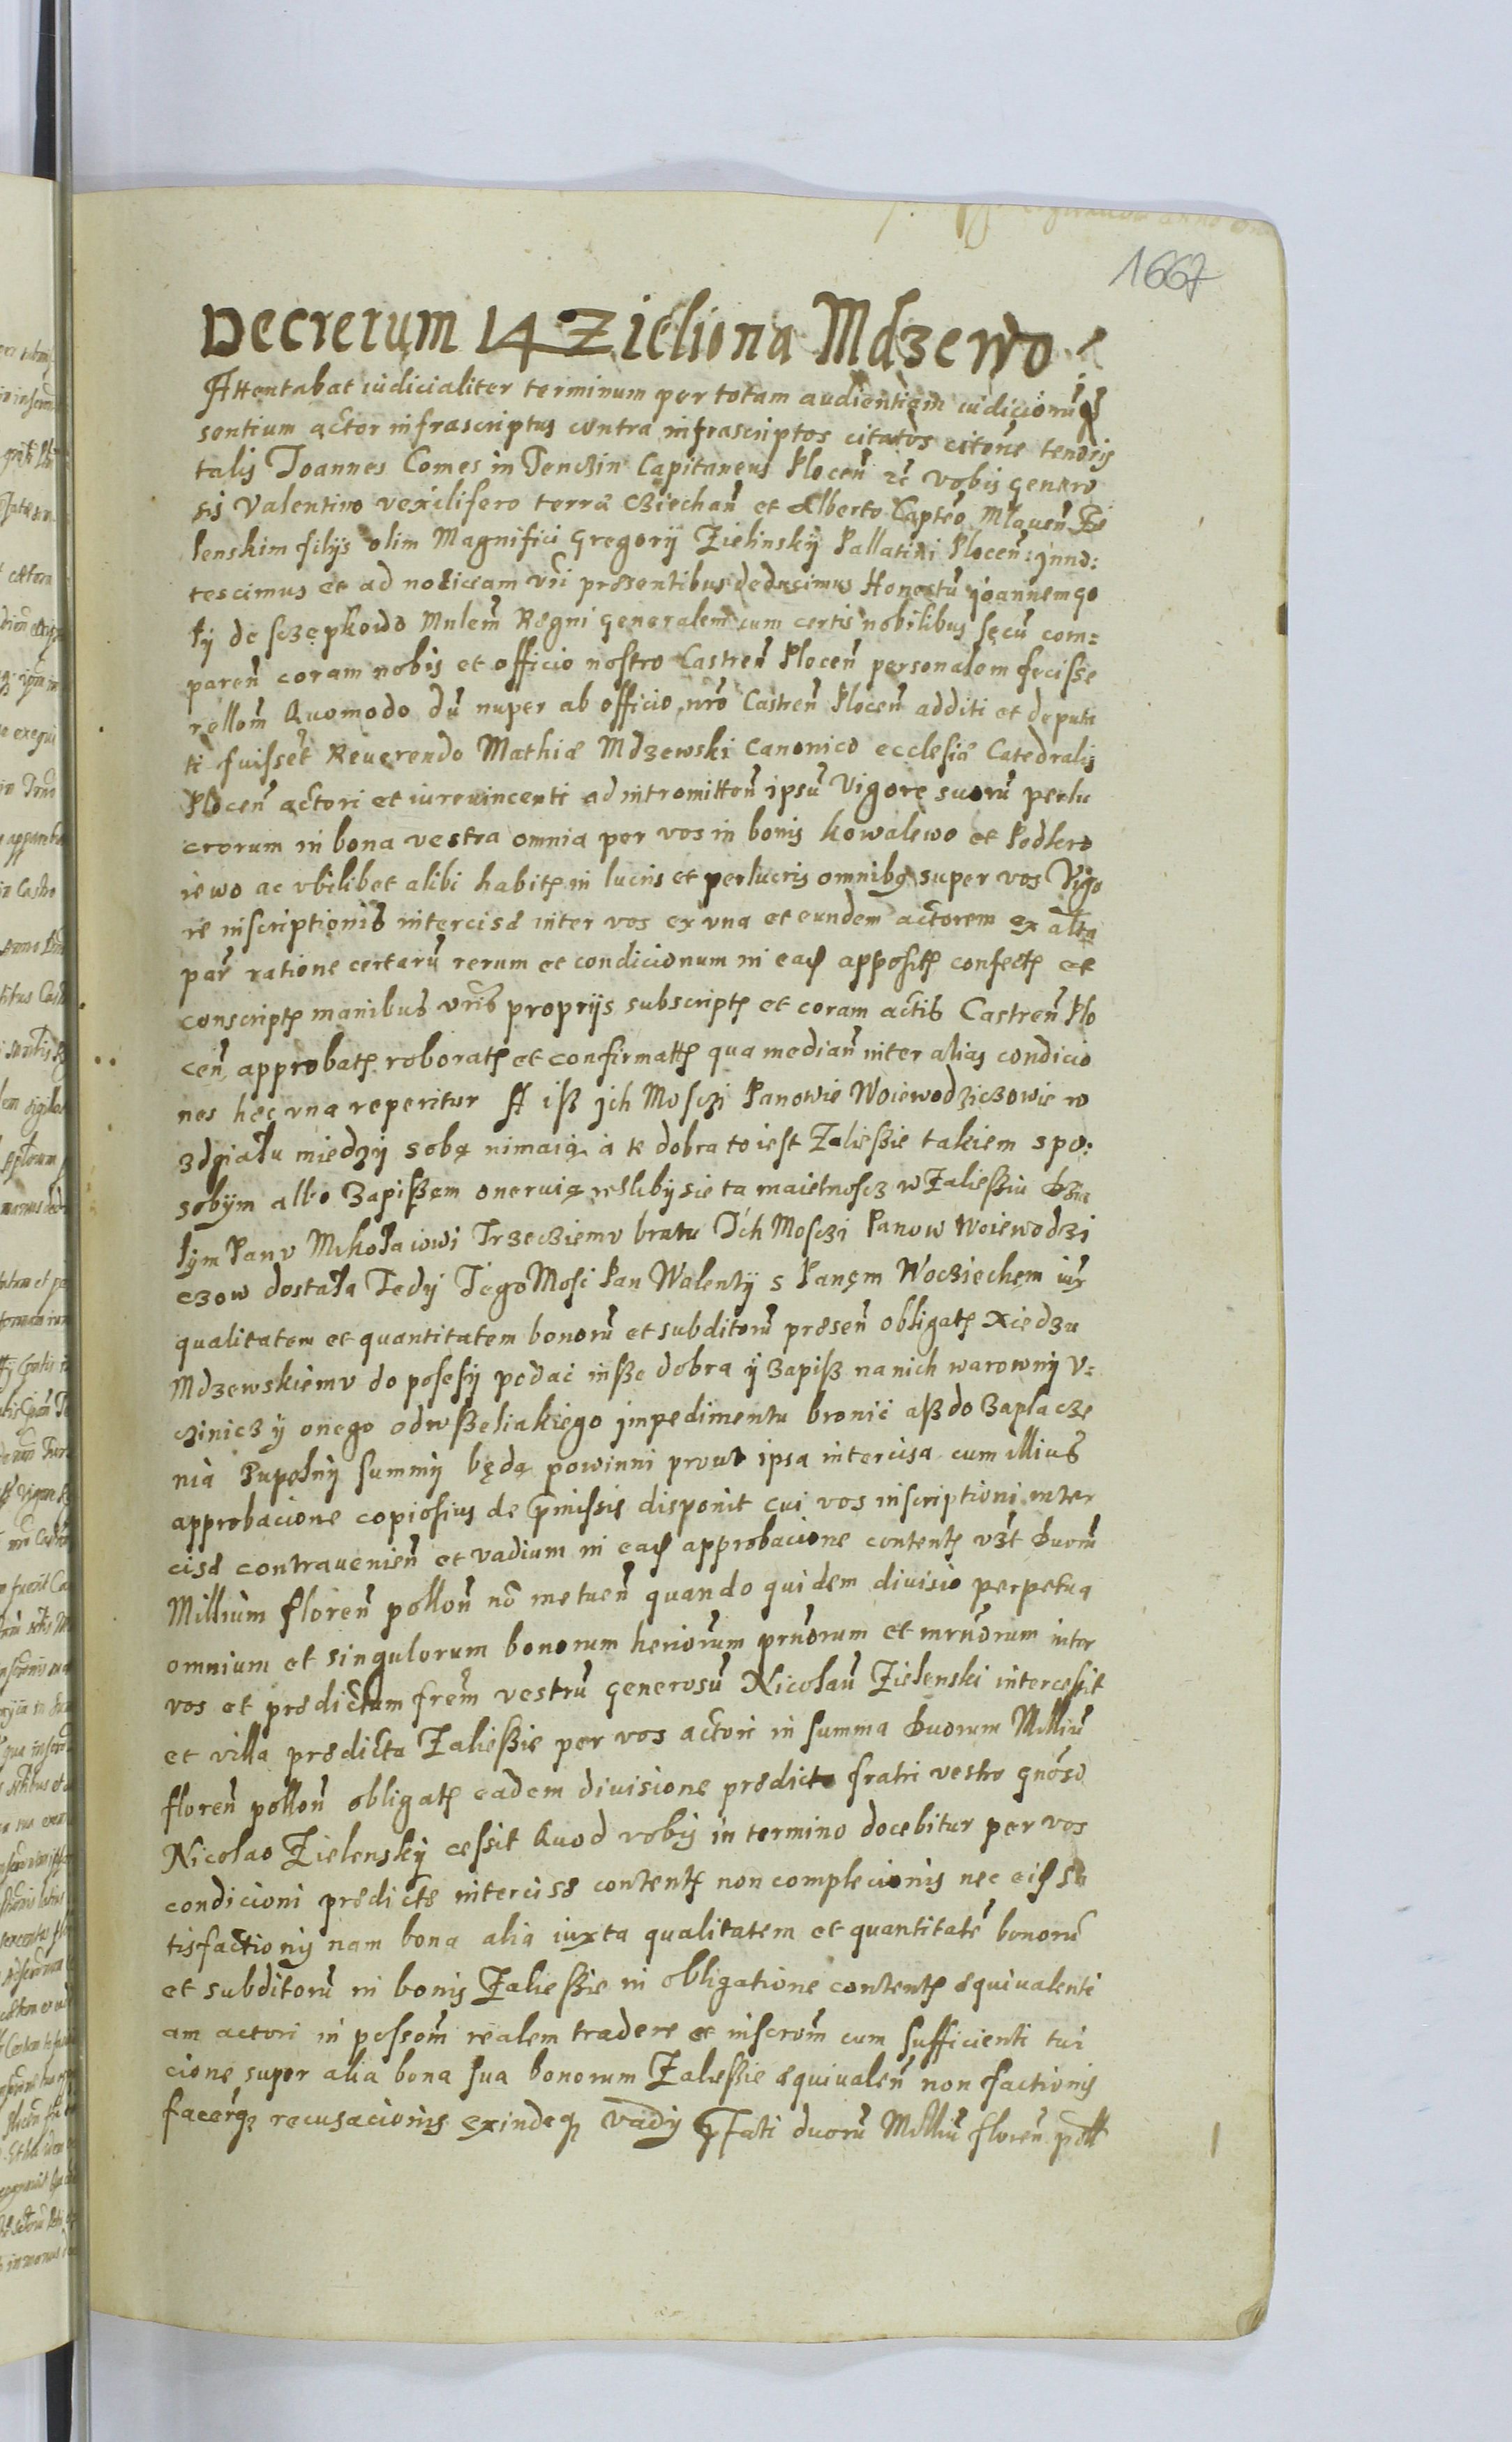 1667
Decretum 14 Zieliona Mdzewo
Attentabat iudicialiter terminum per totam audientiam iudiciorũ
sentium actor infrascriptus contra infrascriptos citatos citoñe tenoris
talis Joannes Comes in Tenczin Capitaneus Plocen̄ etc̄ vobis genero
sis Valentino vexilifero terræ Cziechan̄ et Alberto Captēo Mlauen̄ Zie
lenskim filijs olim Magnifici Gregorij Zielinskÿ Pallatini Plocen̄: Jnno:
tescimus et ad noticiam vr̄i præsentibus deducimus Honestũ Joannem go
lÿ de sczepkowo Mnlem̄ Regni generalem cum certis nobilibus secũ com=
paren̄ coram nobis et officio nostro Castren̄ Plocen̄ personalem fecisse
rellom̄ Quomodo dũ nuper ab officio nrō Castren̄ Plocen̄ additi et deputa
ti fuisset Reuerendo Mathiæ Mdzewski Canonico ecclesiæ Catedralis
Plocen̄ actori et iureuincenti ad intromitten̄ ipsũ Vigore suorũ perlu
crorum in bona vestra omnia per vos in bonis kowalewo et Podkro
iewo ac vbilibet alibi habitʒ in lucris et perlucris omnibʒ super vos Vigo
re inscriptionis intercisæ inter vos ex vna et eundem actorem ex alta
par̄ ratione certarũ rerum et condicionum in eaʒ appositʒ confectʒ et
conscriptʒ manibus vr̄is proprijs subscriptʒ et coram actis Castren̄ Plo
cen̄ approbatʒ roboratʒ et confirmattʒ qua median̄ inter alias condicio
nes hæc vna reperitur A iß Jch Mosczi Panowie Woiewodziczowie w
zdziału miedzÿ sobą nimaią a te dobra to iest Zaließie takiem spo:
sobÿm albo Zapißem oneruią iesliby sie ta maietnoscz w Zaließiu
łÿm Panu Mikołaiowi Trzecziemu bratu Jch Mosczi Panow Woiewodzi
czow dostała Tedÿ Jego Mosc Pan Walentÿ s Panem Wocziechem iux
qualitatem et quantitatem bonorũ et subditorũ præsen̄ obligatʒ xiedzu
Mdzewskiemu do posesÿ podac inße dobra ÿ zapiß na nich warownÿ v=
czinicz ÿ onego od wßeliakiego jmpedimentu bronic aß do zaplacze
nia Zupełnÿ summÿ będą powinni prout ipsa intercisa cum illius
approbacione copiosius de p̄missis disponit cui vos inscriptioni inter
cisæ contrauenien̄ et vadium in eaʒ approbacione contentʒ vz̄t duorũ
Millium floren̄ pollon̄ nō metuen̄ quando quidem diuisio perpetua
omnium et singulorum bonorum heriorum pr̄norum et mr̄norum inter
vos et prædictum frem̄ vestrũ generosũ Nicolaũ Zielenski intercessit
et villa prædicta Zaließie per vos actori in summa duorum Milliũ
floren̄ pollon̄ obligatʒ eadem diuisione prædicto fratri vestro gnōso
Nicolao Zielenskÿ cessit Quod vobis in termino docebitur per vos
condicioni prædictæ intercisæ contentʒ non complecionis nec eiʒ sa
tisfactionis nam bona alia iuxta qualitatem et quantitatẽ bonorũ
et subditorũ in bonis Zaließie in obligatione contentʒ æquiualenti
am actori in possom̄ realem tradere et inscrom̄ cum sufficienti tui
cione super alia bona sua bonorum Zaließie æquiualen̄ non factionis
facerēqʒ recusacionis exindeqʒ vadÿ p̄fati duorũ Milliũ floren̄ poll